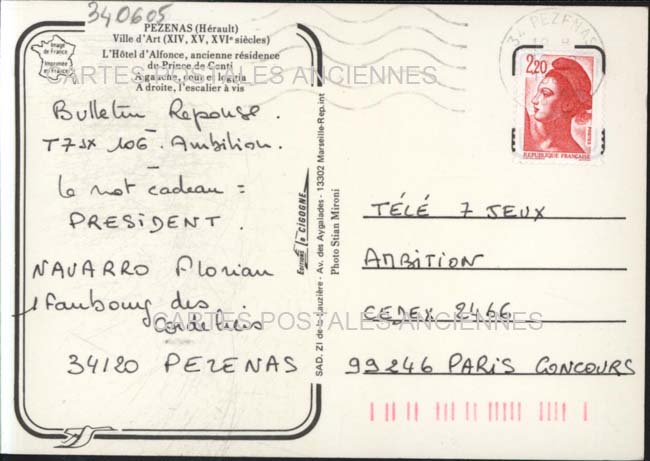 340605
PEZENAS (Hérault)
Ville d'Art (XIV, XV, XVIe siècles)
L'Hôtel d'Alfonce, ancienne résidence
du Prince de Conti
A gauche, cour et loggia
A droite, l'escalier à vis
Image de France
Imprimée en France
CARTES POSTALES ANCIENNES
Bulletin Réponse.
T7JX 106 - Ambition.
le mot cadeau =
PRESIDENT.
NAVARRO Florian
1 Faubourg des
Cordeliers
34120 PEZENAS
Editions la CIGOGNE
SAD. ZI de la Lauzière - Av. des Aygalades - 13302 Marseille-Rep.int
Photo Stian Mironi
34 PEZENAS
2,20
POSTES
REPUBLIQUE FRANÇAISE
TÉLÉ 7 JEUX
AMBITION
CEDEX 2466
99246 PARIS CONCOURS
CARTES POSTALES ANCIENNES